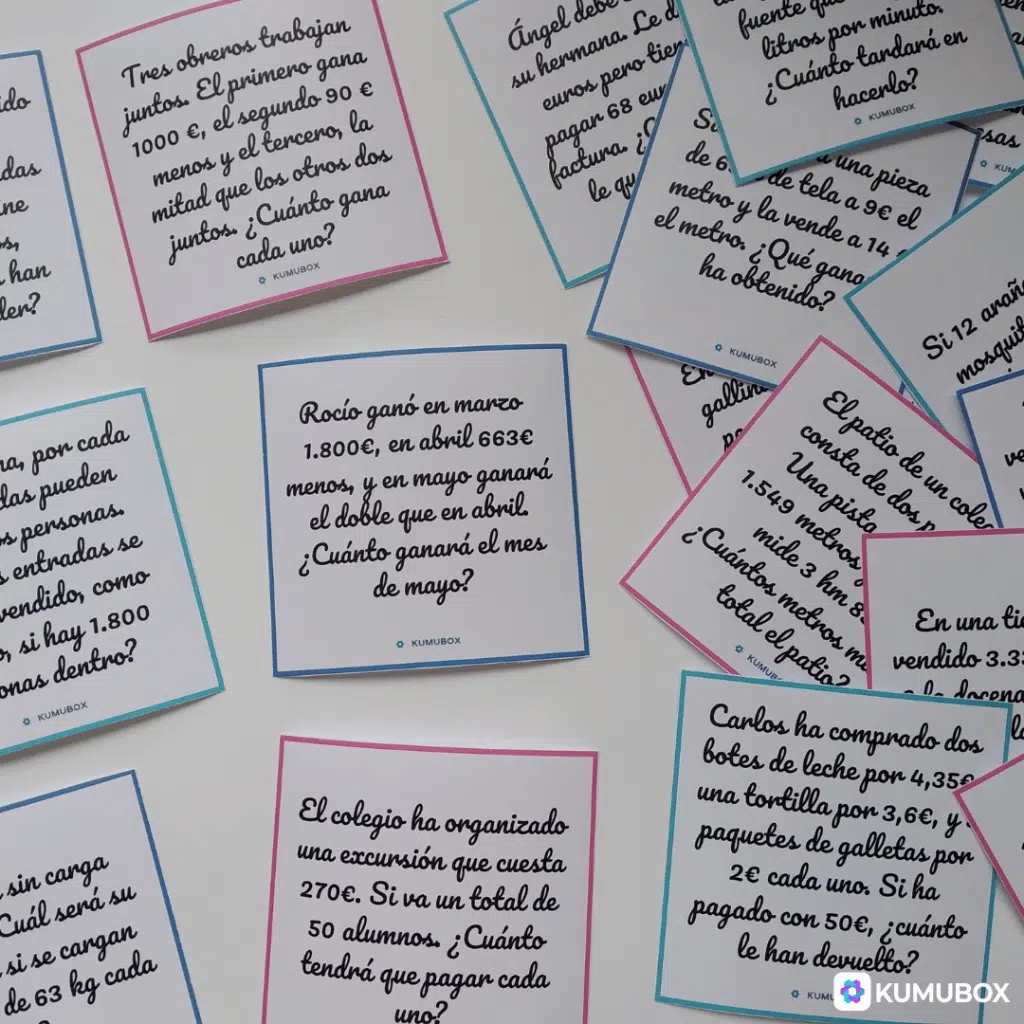 Tres obreros trabajan
juntos. El primero gana
1000 €, el segundo 90 €
menos y el tercero, la
mitad que los otros dos
juntos. ¿Cuánto gana
cada uno?
KUMUBOX
Ángel debe
su hermana. Le d
euros pero tien
pagar 68 eur
factura. ¿
le qu
fuente qu
litros por minuto.
¿Cuánto tardará en
hacerlo?
KUMUBOX
una pieza
de 6 de tela a 9€ el
metro y la vende a 14
el metro. ¿Qué gana
ha obtenido?
KUMUBOX
esas
KUM
ido
das
ine
os,
han
der?
Si 12 arañ
mosquit
En
gallin
El patio de un coleg
consta de dos p
Una pista
1.549 metros y
mide 3 hm 8
¿Cuántos metros m
total el patio?
KUMUB
ve
Rocío ganó en marzo
1.800€, en abril 663€
menos, y en mayo ganará
el doble que en abril.
¿Cuánto ganará el mes
de mayo?
KUMUBOX
na, por cada
das pueden
os personas.
s entradas se
vendido, como
o, si hay 1.800
onas dentro?
KUMUBOX
En una tie
vendido 3.33
a la docena
Carlos ha comprado dos
botes de leche por 4,35€
una tortilla por 3,6€, y
paquetes de galletas por
2€ cada uno. Si ha
pagado con 50€, ¿cuánto
le han devuelto?
KUMU
El colegio ha organizado
una excursión que cuesta
270€. Si va un total de
50 alumnos. ¿Cuánto
tendrá que pagar cada
uno?
sin carga
Cuál será su
si se cargan
de 63 kg cada
KUMUBOX